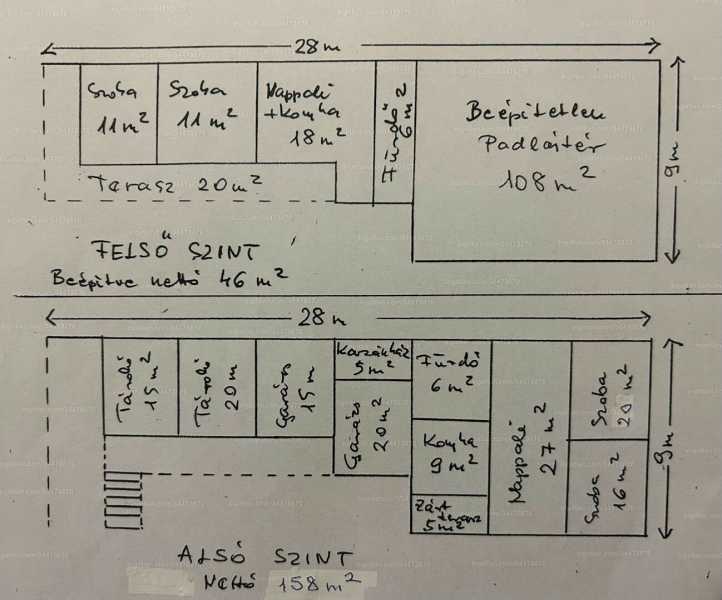 28 m
Szoba
11 m²
Szoba
11 m²
Nappali
+ Konyha
18 m²
Fürdő 2
6 m²
Beépítetlen
Padlástér
108 m²
9 m
Terasz 20 m²
FELSŐ SZINT
Beépítve nettó 46 m²
28 m
Tároló
15 m²
Tároló
20 m
Garázs
15 m
Kazánház
5 m²
Garázs
20 m²
Fürdő
6 m²
Konyha
9 m²
Zárt
terasz
5 m²
Nappali
27 m²
Szoba
20 m²
Szoba
16 m²
9 m
ALSÓ SZINT
Nettó 158 m²